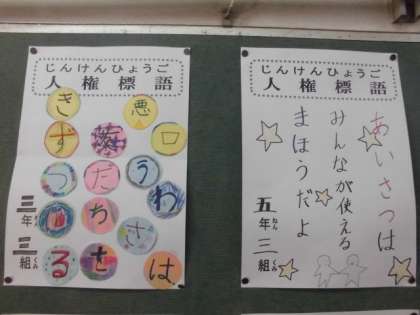 じんけんひょうご
人権標語
悪口うわさは
たちを
きずつる
三年三組
ねん くみ
じんけんひょうご
人権標語
あいさつは
みんなが使える
まほうだよ
五年三組
ねん くみ